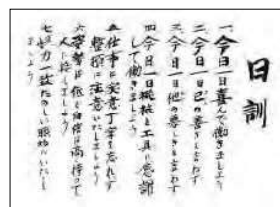 日訓
一、今日一日喜んで働きましょう
二、今日一日己の善しを言わず
三、今日一日他の悪しきを言わず
四、今日一日機械と工具に感謝
して働きましょう
五、仕事に丁寧を忘れず
整頓に注意いたしましょう
六、自信は高く持って
人に接しましょう
七、努力一致たのしい職場にいたし
ましょう